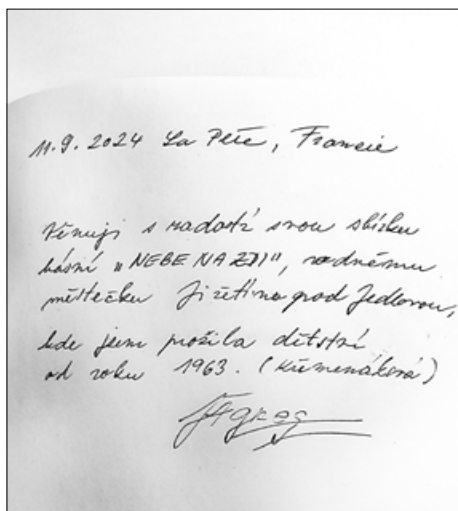 11.9.2024 La Pete, Francie
Věnuji s radostí svou sbírku
básní „NEBE NA ZDI", rodnému
městečku Jiřetínu pod Jedlovou,
kde jsem prožila dětství
od roku 1963. (Křemenáková)